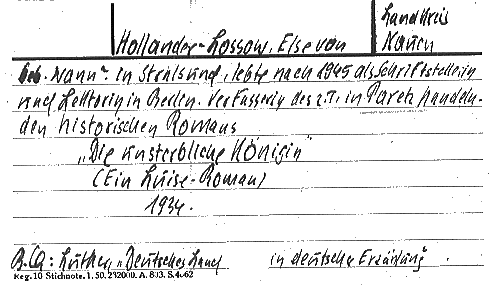 Landkreis
Hollander-Lossow, Else von Nauen
geb. wann? in Stralsund, lebte nach 1945 als Schriftstellerin
und Lektorin in Berlin. Verfasserin des z.T. in Paretz handeln-
den historischen Romans
"Die unsterbliche Königin"
(Ein Luise-Roman)
1934.
B.Qu: Luther, "Deutsches Land in deutscher Erzählung"
Reg. 10 Stichnote. 1. 50. 232000. A. 803. S. 4.62